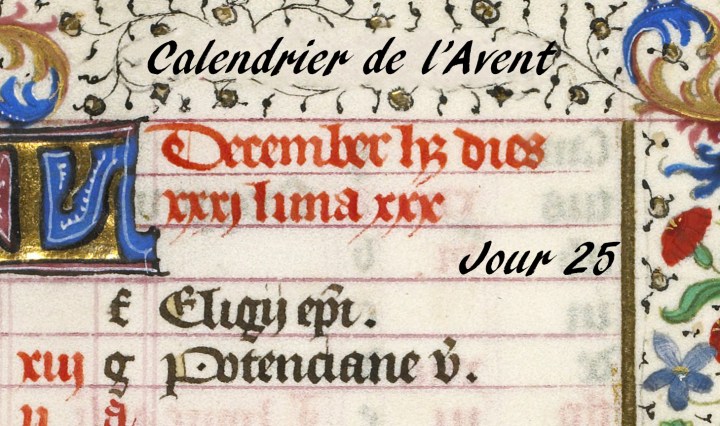 Calendrier de l'Avent
KL
December hꝫ dies
xxxj luna xxx
Jour 25
f Eligij ep̄i.
xiij g Potenciane v̄.
ii a